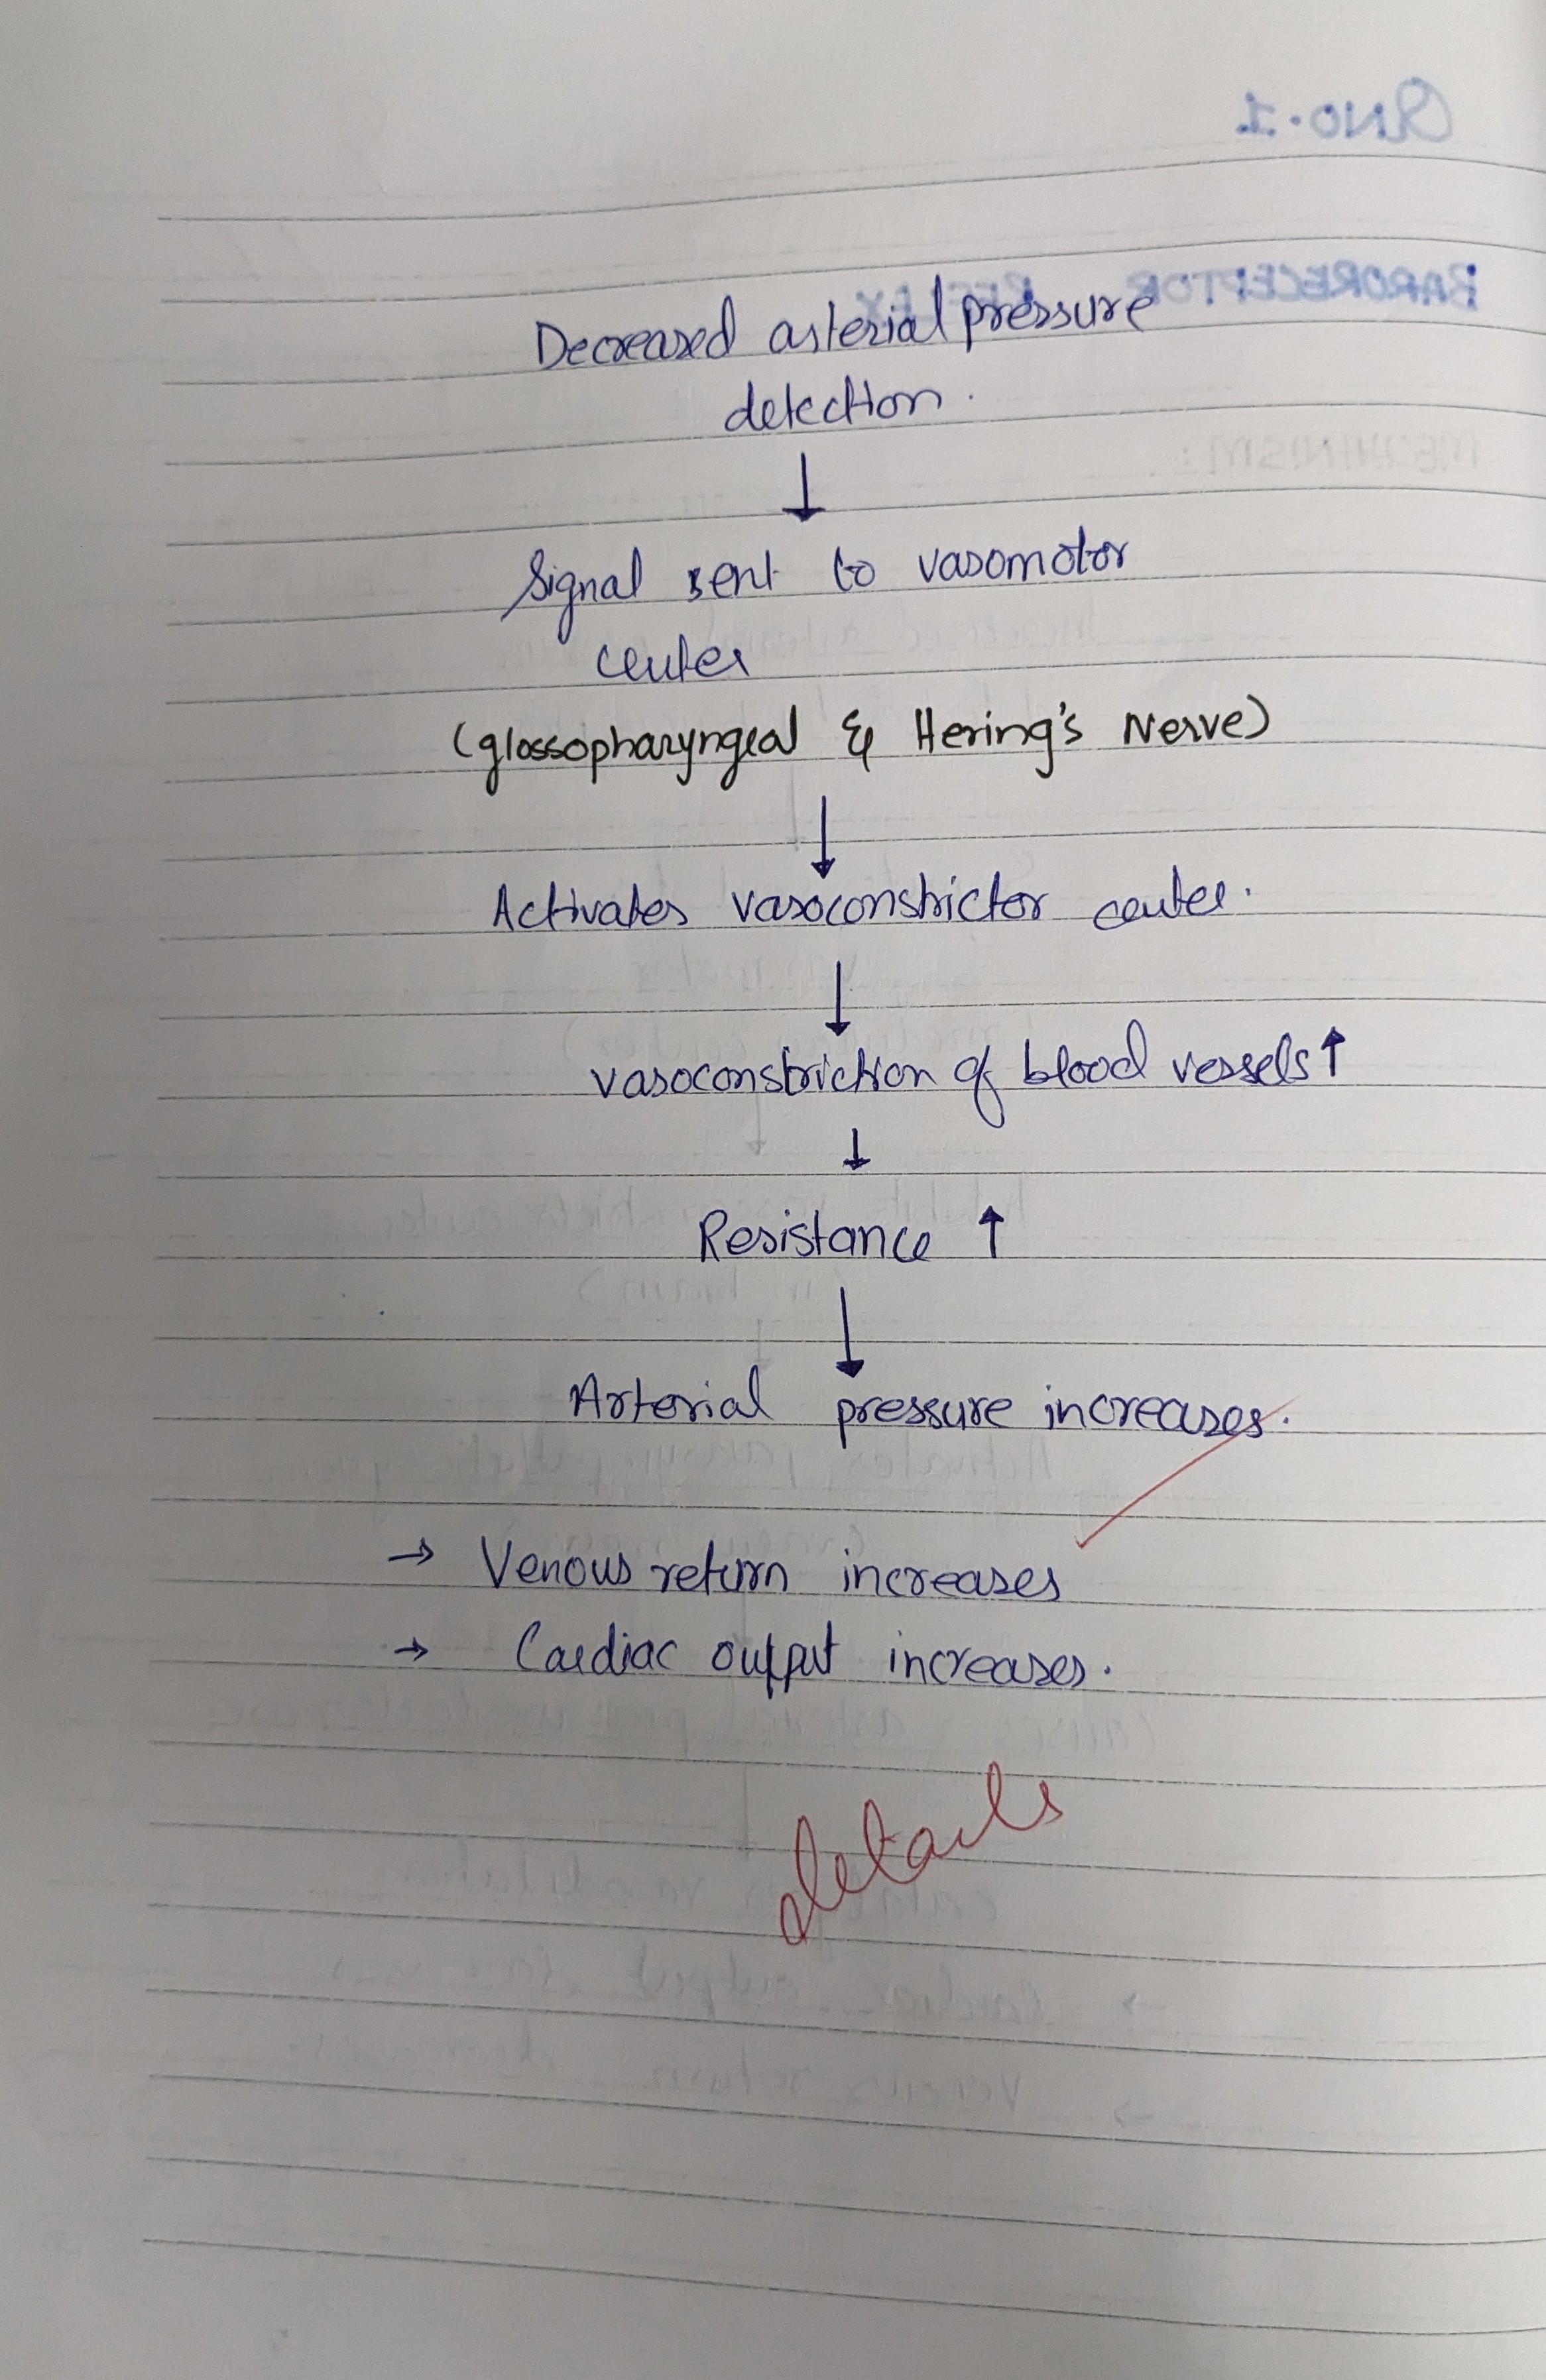 Decreased arterial pressure
detection.
↓
Signal sent to vasomotor
center
(glossopharyngeal & Hering's Nerve)
↓
Activates vasoconstrictor center.
↓
vasoconstriction of blood vessels ↑
↓
Resistance ↑
↓
Arterial pressure increases.
→ Venous return increases
→ Cardiac output increases.
details